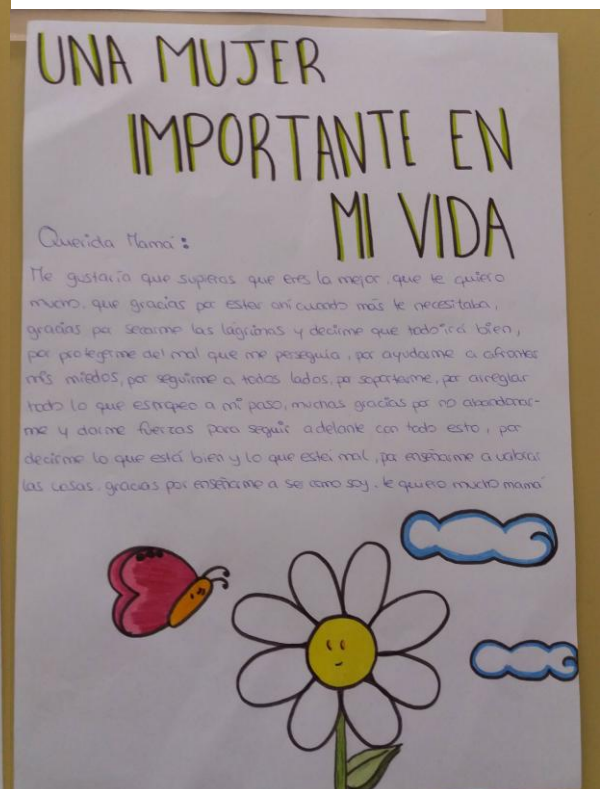 UNA MUJER
IMPORTANTE EN
MI VIDA
Querida Mamá:
Me gustaría que superas que eres la mejor, que te quiero
mucho, que gracias por estar ahí cuando más te necesitaba,
gracias por secarme las lágrimas y decirme que todo irá bien,
por protegerme del mal que me perseguía, por ayudarme a afrontar
mis miedos, por seguirme a todos lados, por soportarme, por arreglar
todo lo que estropeo a mi paso, muchas gracias por no abandonar-
me y darme fuerzas para seguir adelante con todo esto, por
decirme lo que está bien y lo que está mal, por enseñarme a valorar
las cosas. gracias por enseñarme a se como soy. te quiero mucho mamá